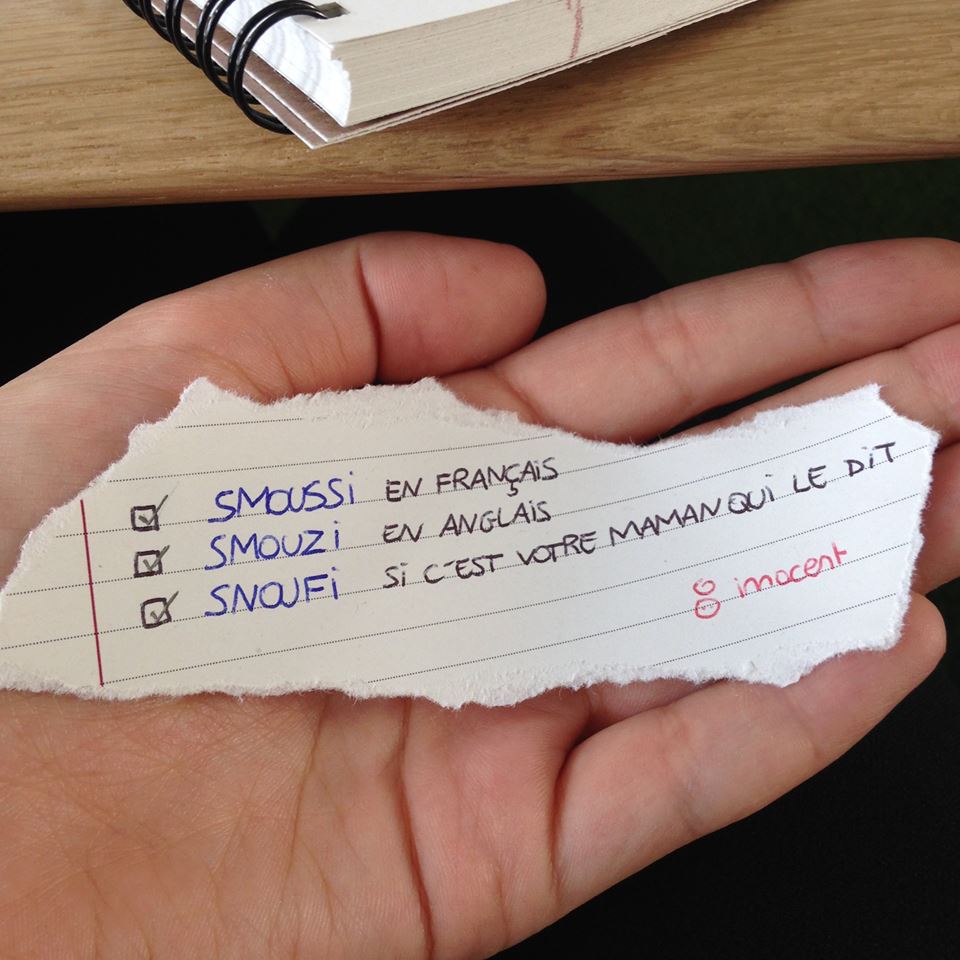 SMOUSSI EN FRANÇAIS
SMOUZI EN ANGLAIS
SNOUFI SI C'EST VOTRE MAMAN QUI LE DIT
innocent